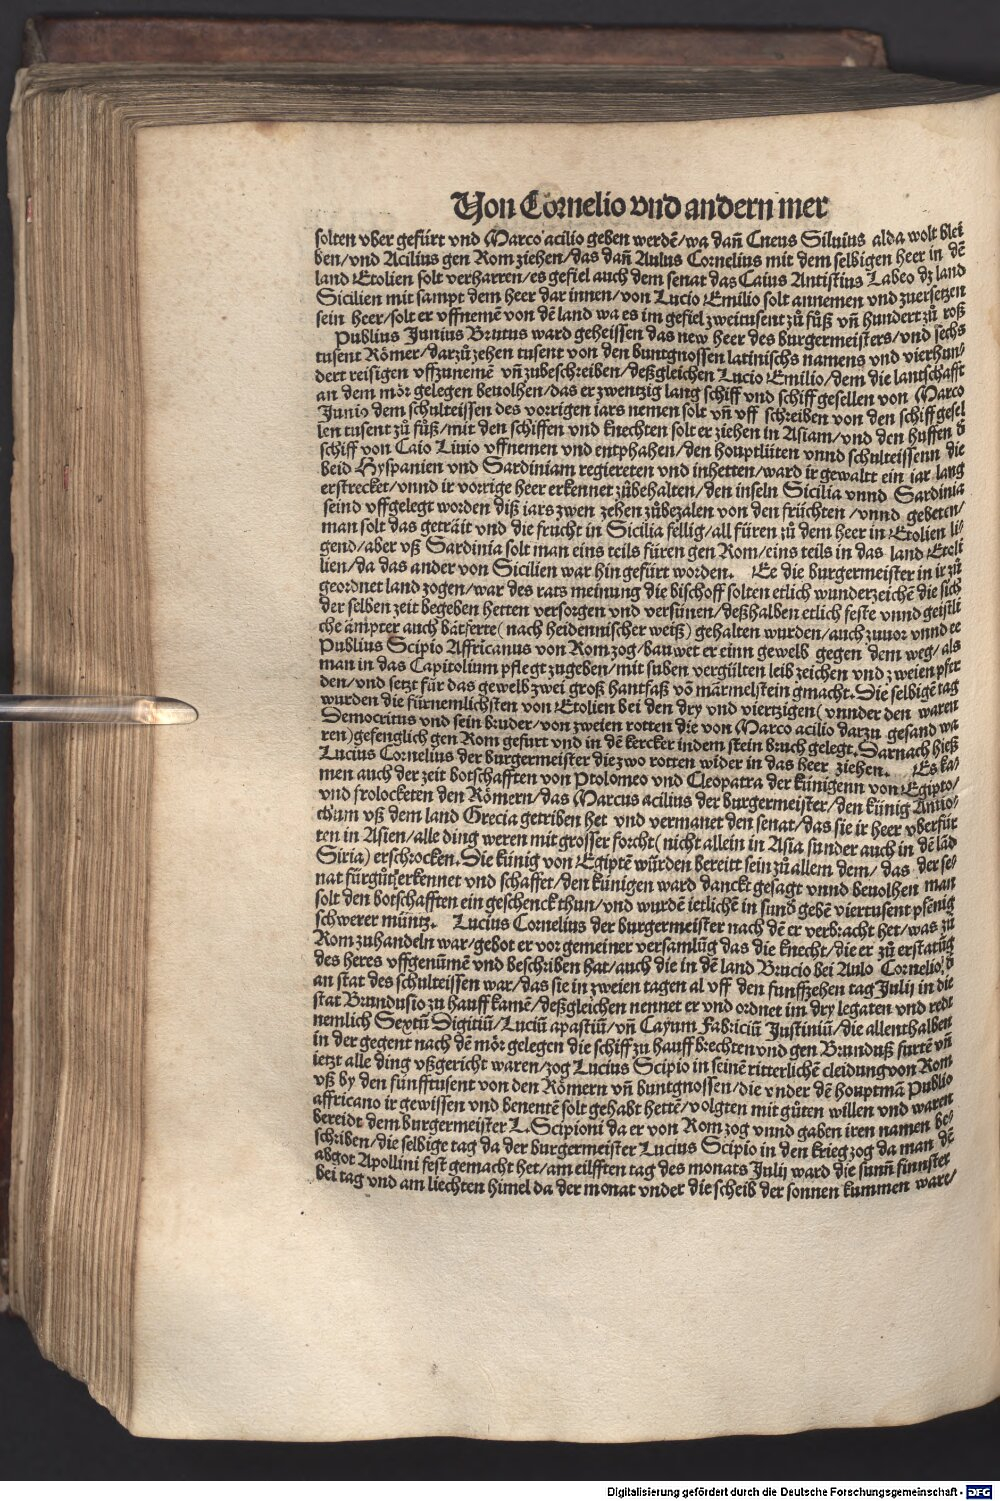 Von Cornelio vnd andern mer
solten vber gefürt vnd Marco acilio geben werdē/wa dañ Cneus Siluius alda wolt blei
ben/vnd Acilius gen Rom ziehen/das dañ Aulus Cornelius mit dem selbigen heer in dē
land Etolien solt verharren/es gefiel auch dem senat das Caius Antistius Labeo dz land
Sicilien mit sampt dem heer dar innen/von Lucio Emilio solt annemen vnd zuersetzen
sein heer/solt er vffnemē von dē land wa es im gefiel zweitusent zů fůß vñ hundert zů roß
Publius Junius Brutus ward geheissen das new heer des burgermeisters/vnd sechs
tusent Römer/darzů zehen tusent von den buntgnossen latinischs namens vnd vierhun⸗
dert reisigen vffzunemē vñ zubeschreiben/deßgleichen Lucio Emilio/dem die lantschafft
an dem mör gelegen beuolhen/das er zwentzig lang schiff vnd schiff gesellen von Marco
Junio dem schulteissen des vorrigen iars nemen solt vñ vff schreiben von den schiff gesel
len tusent zů fůß/mit den schiffen vnd knechten solt er ziehen in Asiam/vnd den huffen d̄
schiff von Caio Liuio vffnemen vnd entphahen/den houptlüten vnnd schulteissenn die
beid Hyspanien vnd Sardiniam regiereten vnd inhetten/ward ir gewaltt ein iar lang
erstrecket/vnnd ir vorrige heer erkennet zůbehalten/den inseln Sicilia vnnd Sardinia
seind vffgelegt worden diß iars zwen zehen zůbezalen von den früchten /vnnd gebeten/
man solt das geträit vnd die frucht in Sicilia fellig/all füren zů dem heer in Etolien li⸗
gend/aber vß Sardinia solt man eins teils füren gen Rom/eins teils in das land Etoli
lien/da das ander von Sicilien war hin gefürt worden. Ee die burgermeister in ir zů
geordnet land zogen/war des rats meinung die bischoff solten etlich wunderzeichē die sich
der selben zeit begeben hetten versorgen vnd versünen/deßhalben etlich feste vnnd geistli
che ämpter auch bätferte( nach heidennischer weiß) gehalten wurden/auch zuuor vnnd ee
Publius Scipio Affricanus von Rom zog/bauwet er einn gewelb gegen dem weg/als
man in das Capitolium pflegt zugeben/mit suben vergülten leib zeichen vnd zweien pfer
den/vnd setzt für das gewelb zwei groß hantfaß vō märmelstein gmacht. Die selbigē tag
wurden die fürnemlichsten von Etolien bei den dry vnd viertzigen( vnnder den waren
Democritus vnd sein bruder/von zweien rotten die von Marco acilio darzu gesand wa
ren)gefenglich gen Rom gefurt vnd in dē kercker indem stein bruch gelegt. Darnach hieß
Lucius Cornelius der burgermeister die zwo rotten wider in das heer ziehen. Es ka⸗
men auch der zeit botschafften von Ptolomeo vnd Cleopatra der künigenn von Egipto/
vnd frolocketen den Römern/das Marcus acilius der burgermeister/den künig Antio⸗
chum vß dem land Grecia getriben het vnd vermanet den senat/das sie ir heer vberfür
ten in Asien/alle ding weren mit grosser forcht( nicht allein in Asia sunder auch in dē lād
Siria) erschrocken. Die künig von Egiptē würden bereitt sein zů allem dem/ das der se⸗
nat für gůt erkennet vnd schaffet/den künigen ward danckt gesagt vnnd beuolhen man
solt den botschafften ein geschenck thun/vnd wurdē ietlichē in sund̄ gebē viertusent pfēnig
schwerer müntz. Lucius Cornelius der burgermeister nach dē er verbracht het/was zů
Rom zuhandeln war/gebot er vor gemeiner versamlūg das die knecht/die er zů erstatūg
des heres vffgenūmē vnd beschriben hat/auch die in dē land Brucio bei Aulo Cornelio/d̄
an stat des schulteissen war/das sie in zweien tagen al vff den funffzehen tag Julij in die
stat Brundusio zu hauff kamē/deßgleichen nennet er vnd ordnet im dry legaten vnd redt
nemlich Sextū Digitiū/Luciū apastiū/vñ Cayum Fabriciū Justiniū/die allenthalben
in der gegent nach dē mör gelegen die schiff zu hauff brechten vnd gen Brunduß furtē vñ
ietzt alle ding vßgericht waren/zog Lucius Scipio in seinē ritterlichē cleidung von Rom
vß by den fünfftusent von den Römern vñ buntgnossen/die vnder dē houptmā Publio
affricano ir gewissen vnd benentē solt gehabt hettē/volgten mit gůten willen vnd waren
bereidt dem burgermeister L. Scipioni da er von Rom zog vnnd gaben iren namen be⸗
schriben/die selbige tag da der burgermeister Lucius Scipio in den krieg zog da man dē
abgot Apollini fest gemacht het/am eilfften tag des monats Julij ward die sunñ finnster
bei tag vnd am liechten himel da der monat vnder die scheib der sonnen kummen ware/
Digitalisierung gefördert durch die Deutsche Forschungsgemeinschaft - DFG